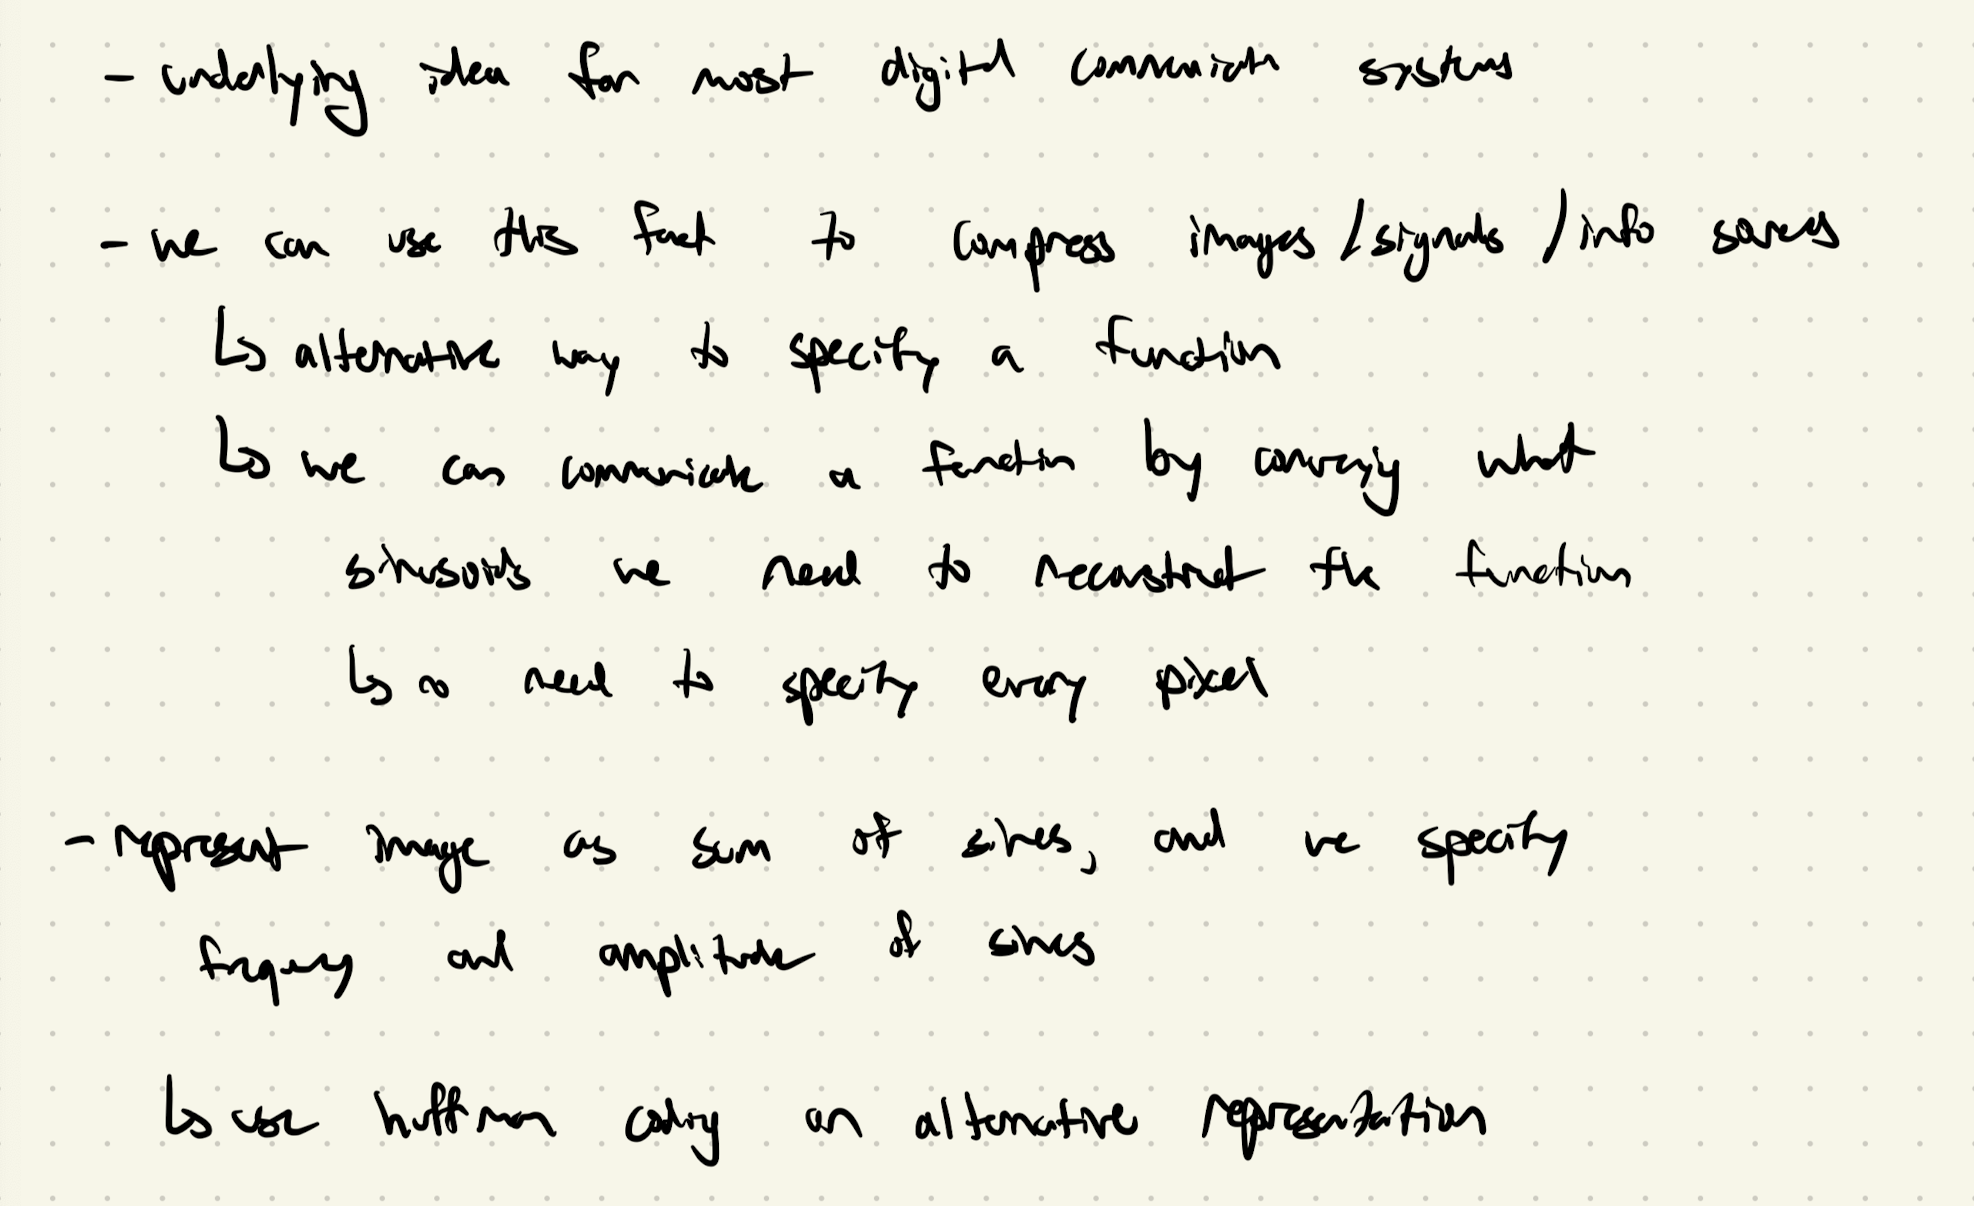 - underlying idea for most digital communication systems
- we can use this fact to compress images / signals / info sources
↳ alternative way to specify a function
↳ we can communicate a function by conveying what
sinusoids we need to reconstruct the function
↳ no need to specify every pixel
- represent image as sum of sines, and we specify
frequency and amplitude of sines
↳ use huffman coding on alternative representation